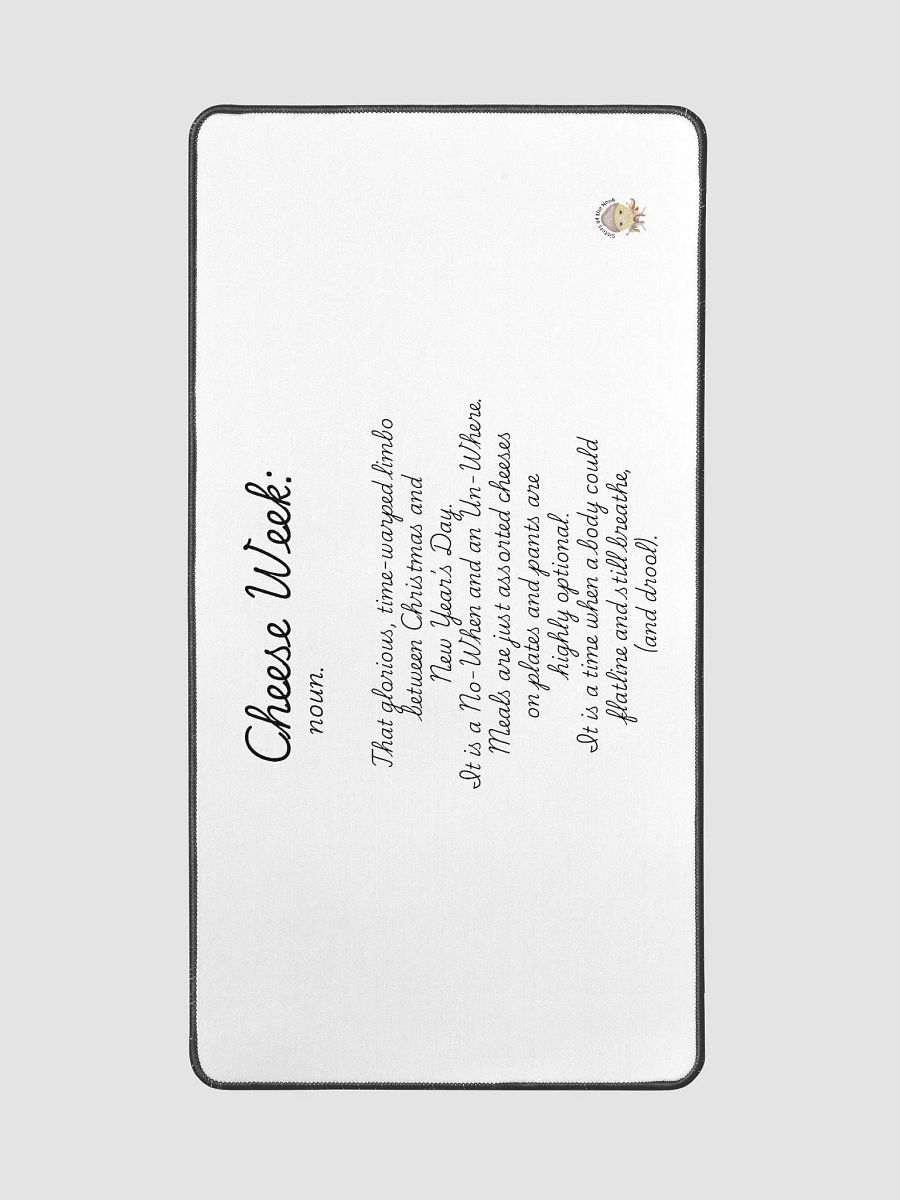 Cheese Week:
noun.
That glorious, time-warped limbo
between Christmas and
New Year's Day.
It is a No-When and an Un-Where.
Meals are just assorted cheeses
on plates and pants are
highly optional.
It is a time when a body could
flatline and still breathe,
(and drool).
Sisters of the Nook